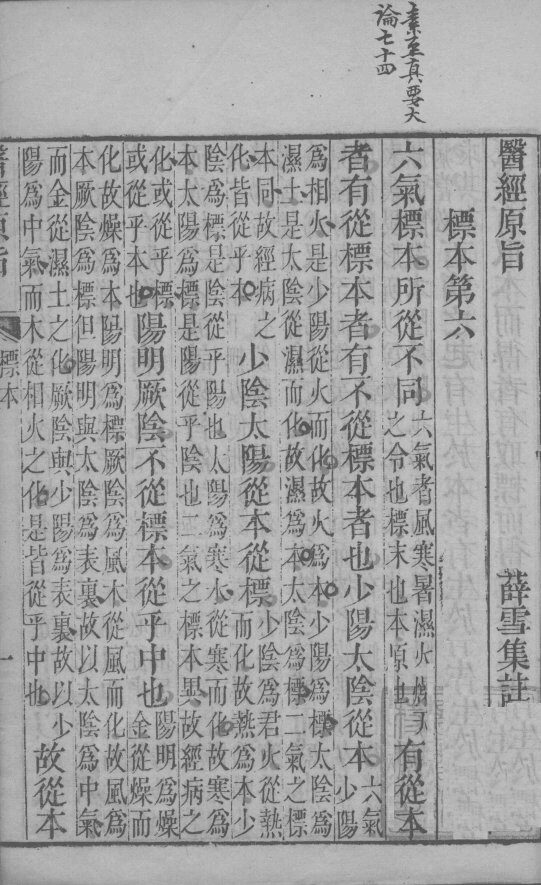 素至真要大
論七十四
醫經原旨　薛雪集註
標本第六
六氣標本所從不同六氣者風寒暑濕火燥天
之令也標末也本原也有從本
者有從標本者有不從標本者也少陽太陰從本六氣
少陽
爲相火是少陽從火而化故火爲本少陽爲標太陰爲
濕土是太陰從濕而化故濕爲本太陰爲標二氣之標
本同故經病之
化皆從乎本少陰太陽從本從標少陰爲君火從熱
而化故熱爲本少
陰爲標是陰從乎陽也太陽爲寒水從寒而化故寒爲
本太陽爲標是陽從乎陰也二氣之標本異故經病之
化或從乎標
或從乎本也陽明厥陰不從標本從乎中也陽明爲燥
金從燥而
化故燥爲本陽明爲標厥陰爲風木從風而化故風爲
本厥陰爲標但陽明與太陰爲表裏故以太陰爲中氣
而金從濕土之化厥陰與少陽爲表裏故以少
陽爲中氣而木從相火之化是皆從乎中也故從本
醫經原旨　標本　一